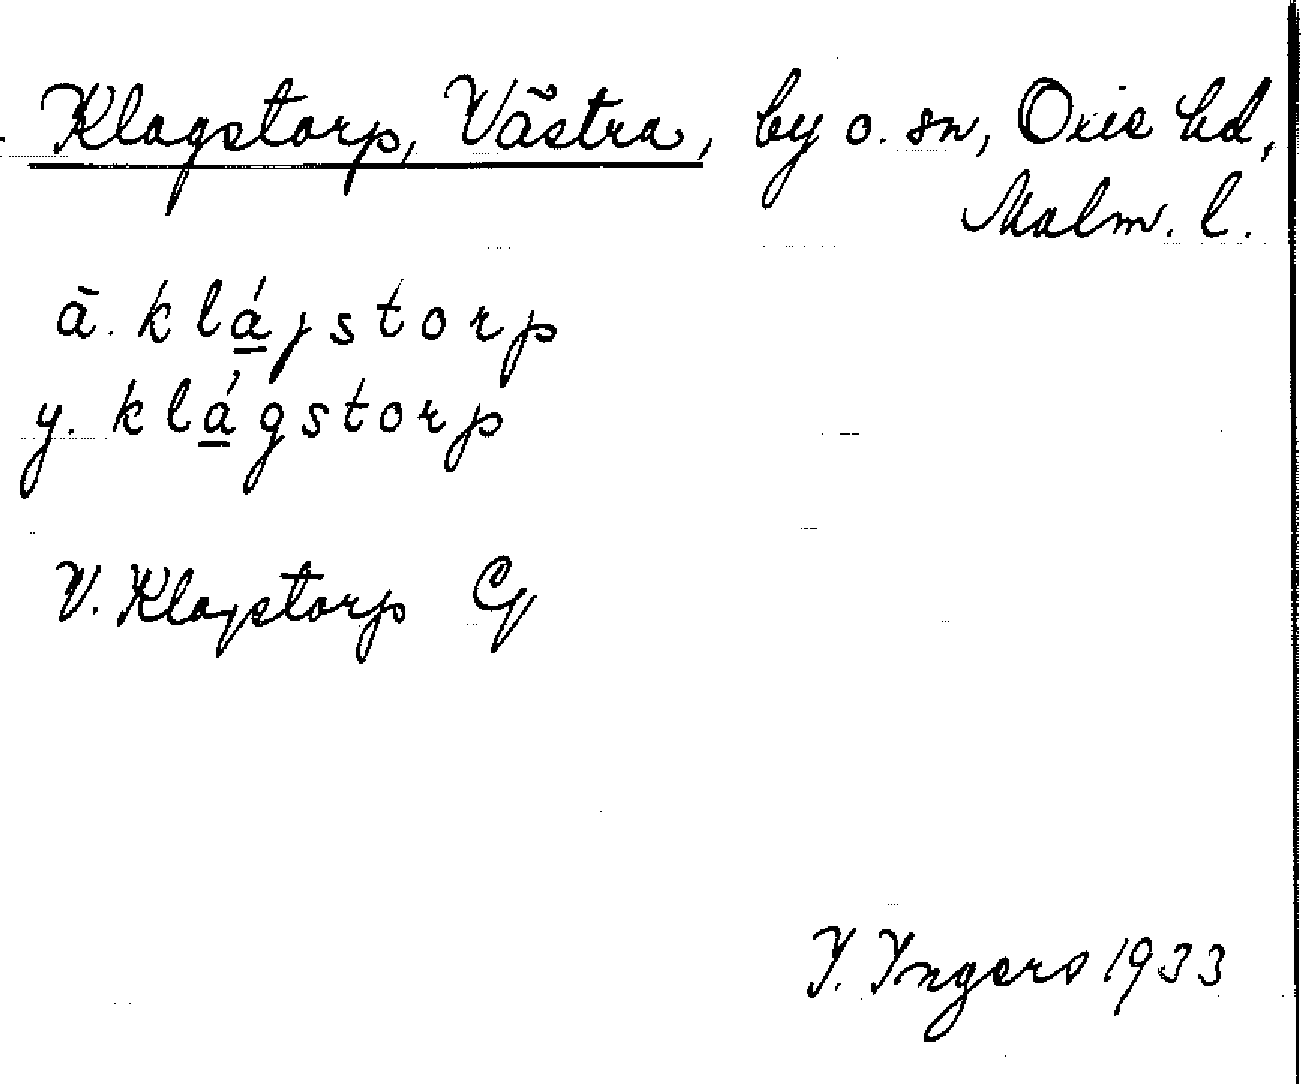 Klagstorp, Västra, by o. sn, Oxie hd,
Malm. l.
ä. klájstorp
y. klágstorp
V. Klagstorp
I. Ingers 1933